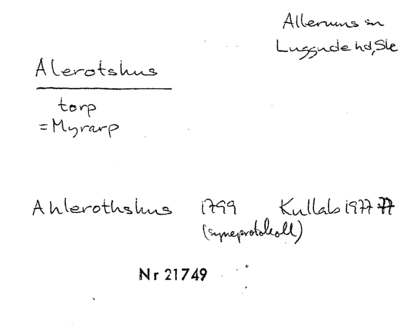 Allerums sn
Luggude hd, Sk
Alerotshus
torp
= Myrarp
Ahlerothshus 1799 Kullab 1977 77
(syneprotokoll)
Nr 21749